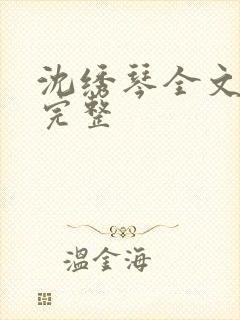 沈绣琴全文
完整
温金海